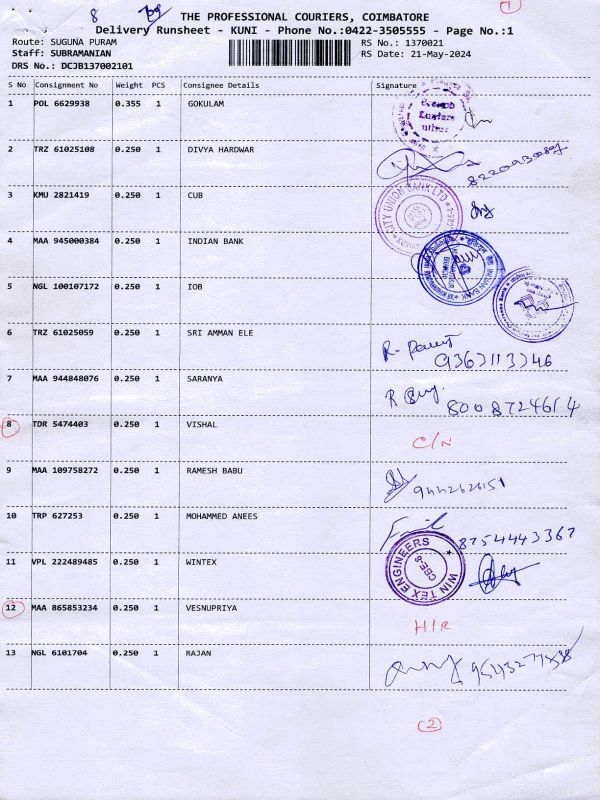 8
1
THE PROFESSIONAL COURIERS, COIMBATORE
Delivery Runsheet - KUNI - Phone No.:0422-3505555 - Page No.:1
Route: SUGUNA PURAM
RS No.: 1370021
Staff: SUBRAMANIAN
RS Date: 21-May-2024
DRS No.: DCJB137002101
S No Consignment No Weight PCS Consignee Details Signature
1 POL 6629938 0.355 1 GOKULAM
2 TRZ 61025108 0.250 1 DIVYA HARDWAR
3 KMU 2821419 0.250 1 CUB
CITY UNION BANK LTD
4 MAA 945000384 0.250 1 INDIAN BANK
INDIAN BANK
5 NGL 100107172 0.250 1 IOB
6 TRZ 61025059 0.250 1 SRI AMMAN ELE
9363113346
7 MAA 944848076 0.250 1 SARANYA
8008724614
8 TDR 5474403 0.250 1 VISHAL C/N
9 MAA 109758272 0.250 1 RAMESH BABU
10 TRP 627253 0.250 1 MOHAMMED ANEES
8754443367
11 VPL 222489485 0.250 1 WINTEX
WIN TEX ENGINEERS CBE-8
12 MAA 865853234 0.250 1 VESNUPRIYA H/R
13 NGL 6101704 0.250 1 RAJAN
2